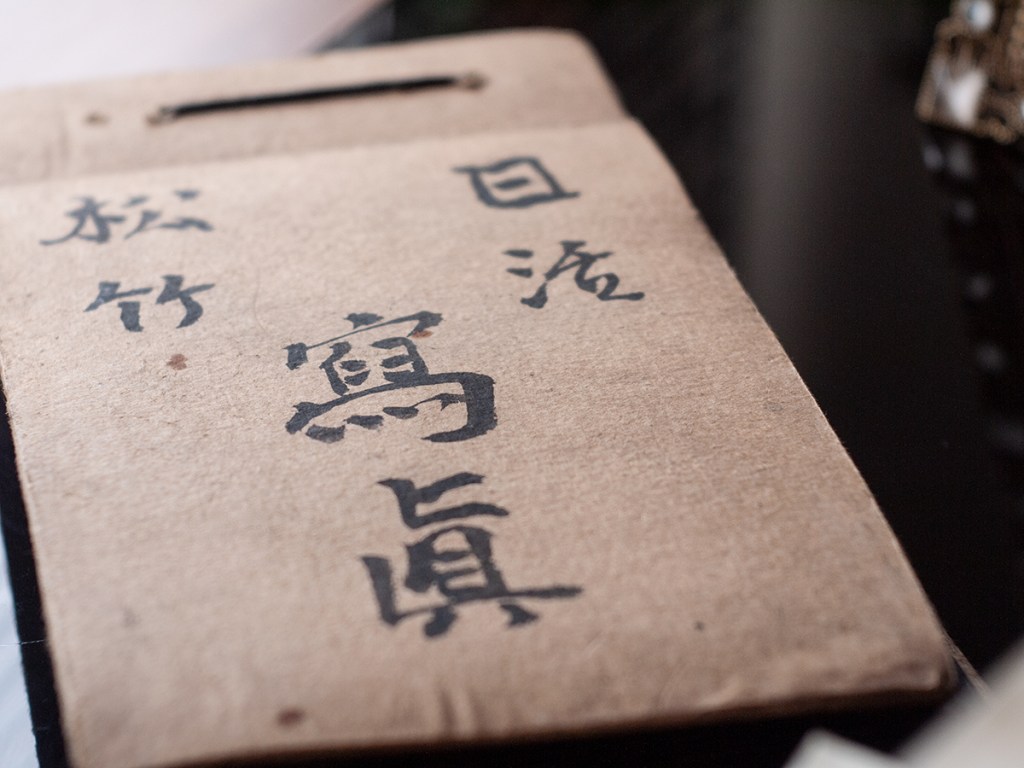 日活
松竹
寫眞